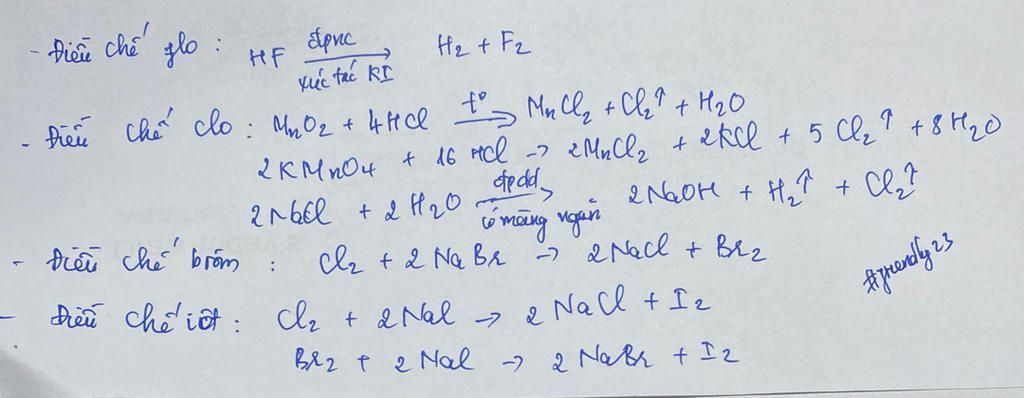 - Điều chế flo : HF đpnc → xúc tác KI H₂ + F₂
- Điều chế clo : MnO₂ + 4HCl t° → MnCl₂ + Cl₂↑ + H₂O
2KMnO₄ + 16 HCl → 2MnCl₂ + 2KCl + 5 Cl₂↑ + 8H₂O
2NaCl + 2H₂O đpdd → có màng ngăn 2NaOH + H₂↑ + Cl₂↑
- Điều chế brôm : Cl₂ + 2NaBr → 2NaCl + Br₂
#friendly23
- Điều chế iôt : Cl₂ + 2NaI → 2NaCl + I₂
Br₂ + 2NaI → 2NaBr + I₂